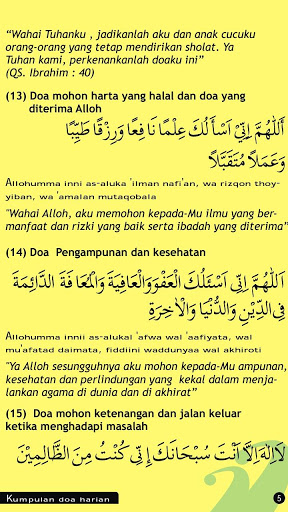 “Wahai Tuhanku , jadikanlah aku dan anak cucuku
orang-orang yang tetap mendirikan sholat. Ya
Tuhan kami, perkenankanlah doaku ini”
(QS. Ibrahim : 40)
(13) Doa mohon harta yang halal dan doa yang
diterima Alloh
أَللّٰهُمَّ إِنِّيْ أَسْأَلُكَ عِلْمًا نَافِعًا وَرِزْقًا طَيِّبًا
وَعَمَلًا مُتَقَبَّلًا
Allohumma inni as-aluka ‘ilman nafi’an, wa rizqon thoy-
yiban, wa ‘amalan mutaqobala
"Wahai Alloh, aku memohon kepada-Mu ilmu yang ber-
manfaat dan rizki yang baik serta ibadah yang diterima”
(14) Doa Pengampunan dan kesehatan
اَللّٰهُمَّ اِنِّى اَسْئَلُكَ الْعَفْوَ وَالْعَافِيَةَ وَالْمُعَافَةَ الدَّائِمَةَ
فِى الدِّيْنِ وَالدُّنْيَا وَالْاٰخِرَةِ
Allohumma inni as-alukal ‘afwa wal ‘aafiyata, wal
mu’afatad daimata, fiddiini waddunyaa wal akhiroti
"Ya Alloh sesungguhnya aku mohon kepada-Mu ampunan,
kesehatan dan perlindungan yang kekal dalam menja-
lankan agama di dunia dan di akhirat”
(15) Doa mohon ketenangan dan jalan keluar
ketika menghadapi masalah
لَااِلٰهَ اِلَّا اَنْتَ سُبْحَانَكَ اِنِّى كُنْتُ مِنَ الظَّالِمِيْنَ
Kumpulan doa harian
5